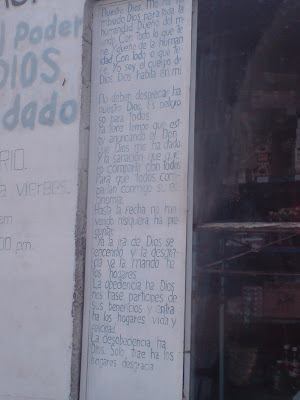 l Poder
DIOS
dado
RIO.
a viernes.
em
:00 pm.
Nuestro Dios. Me ha
Dios para toda la
humanidad Dueño del mu
ndo. Con todo lo que tie
ne. Y dueño de la human
idad Con todo o que tie
ne. Yo soy el cuerpo de
Dios. Dios habita en mi
No deben despreciar ha
nuestro Dios. Es peligro
so para todos
Ya tiene tiempo que est
oy anunciando el Don
que Dios me ha dado
Y la sanación que qui
so compartir con todos
Para que todos comp
artan conmigo su
Hasta la fecha no han
venido nisquiera ha pre
guntar
Ya la ira de Dios se
encendio y la desgra
cia ya la mando ha
los hogares
La obediencia ha Dios
nos hase participes de
sus beneficios y entra
ha los hogares vida y
felicidad
La desobediencia ha
Dios. Solo trae ha los
hogares desgracia